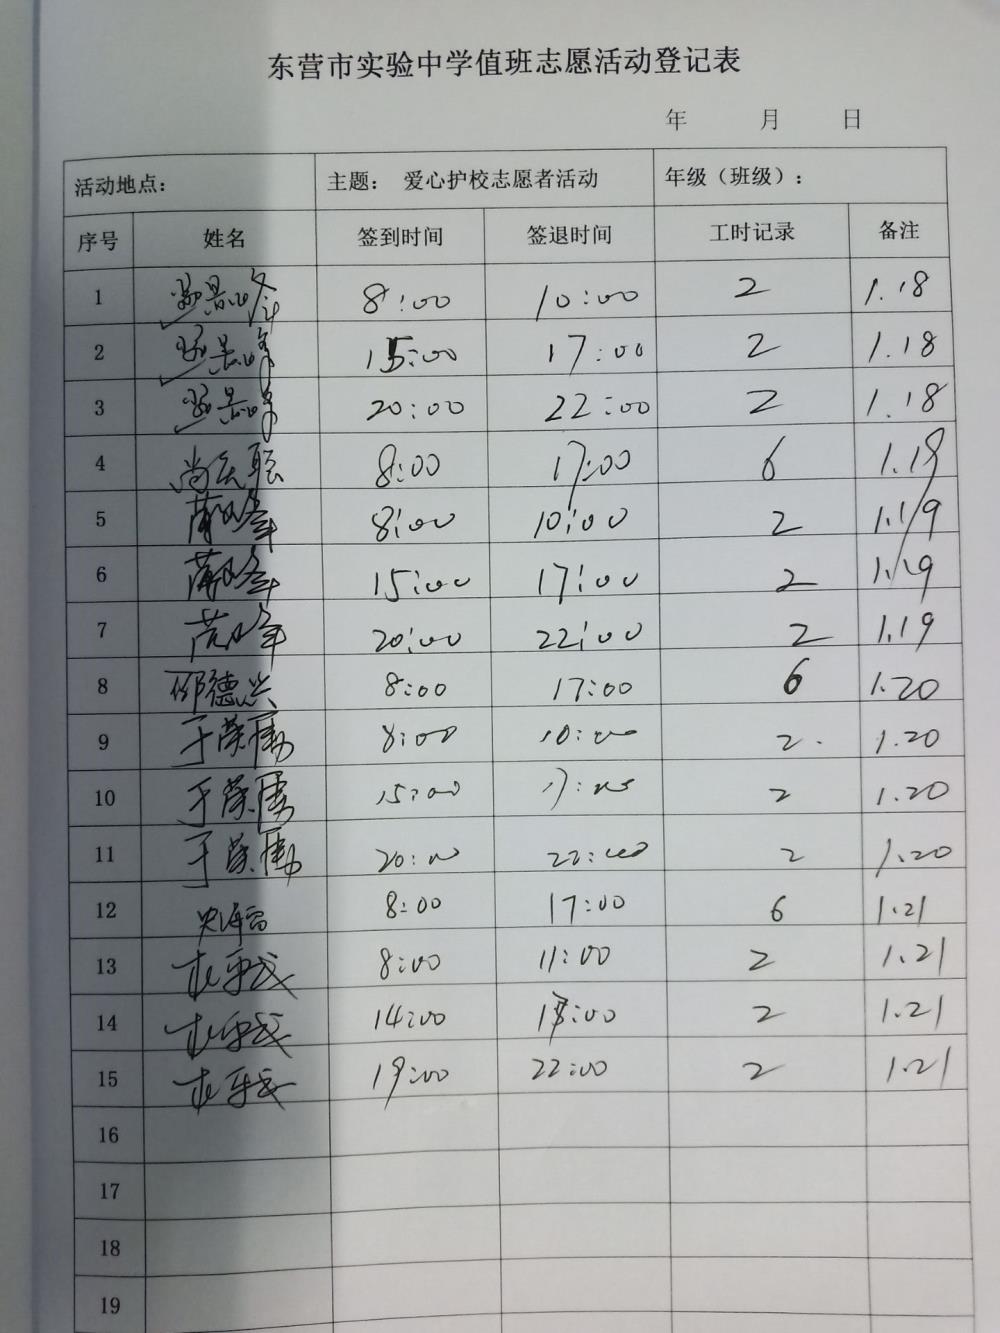 东营市实验中学值班志愿活动登记表
年 月 日
活动地点: 主题: 爱心护校志愿者活动 年级（班级）:
序号 姓名 签到时间 签退时间 工时记录 备注
1 8:00 10:00 2 1.18
2 15:00 17:00 2 1.18
3 20:00 22:00 2 1.18
4 8:00 17:00 6 1.19
5 8:00 10:00 2 1.19
6 15:00 17:00 2 1.19
7 20:00 22:00 2 1.19
8 邵德兴 8:00 17:00 6 1.20
9 8:00 10:00 2 1.20
10 15:00 17:00 2 1.20
11 20:00 22:00 2 1.20
12 8:00 17:00 6 1.21
13 8:00 11:00 2 1.21
14 14:00 2 1.21
15 19:00 22:00 2 1.21
16
17
18
19